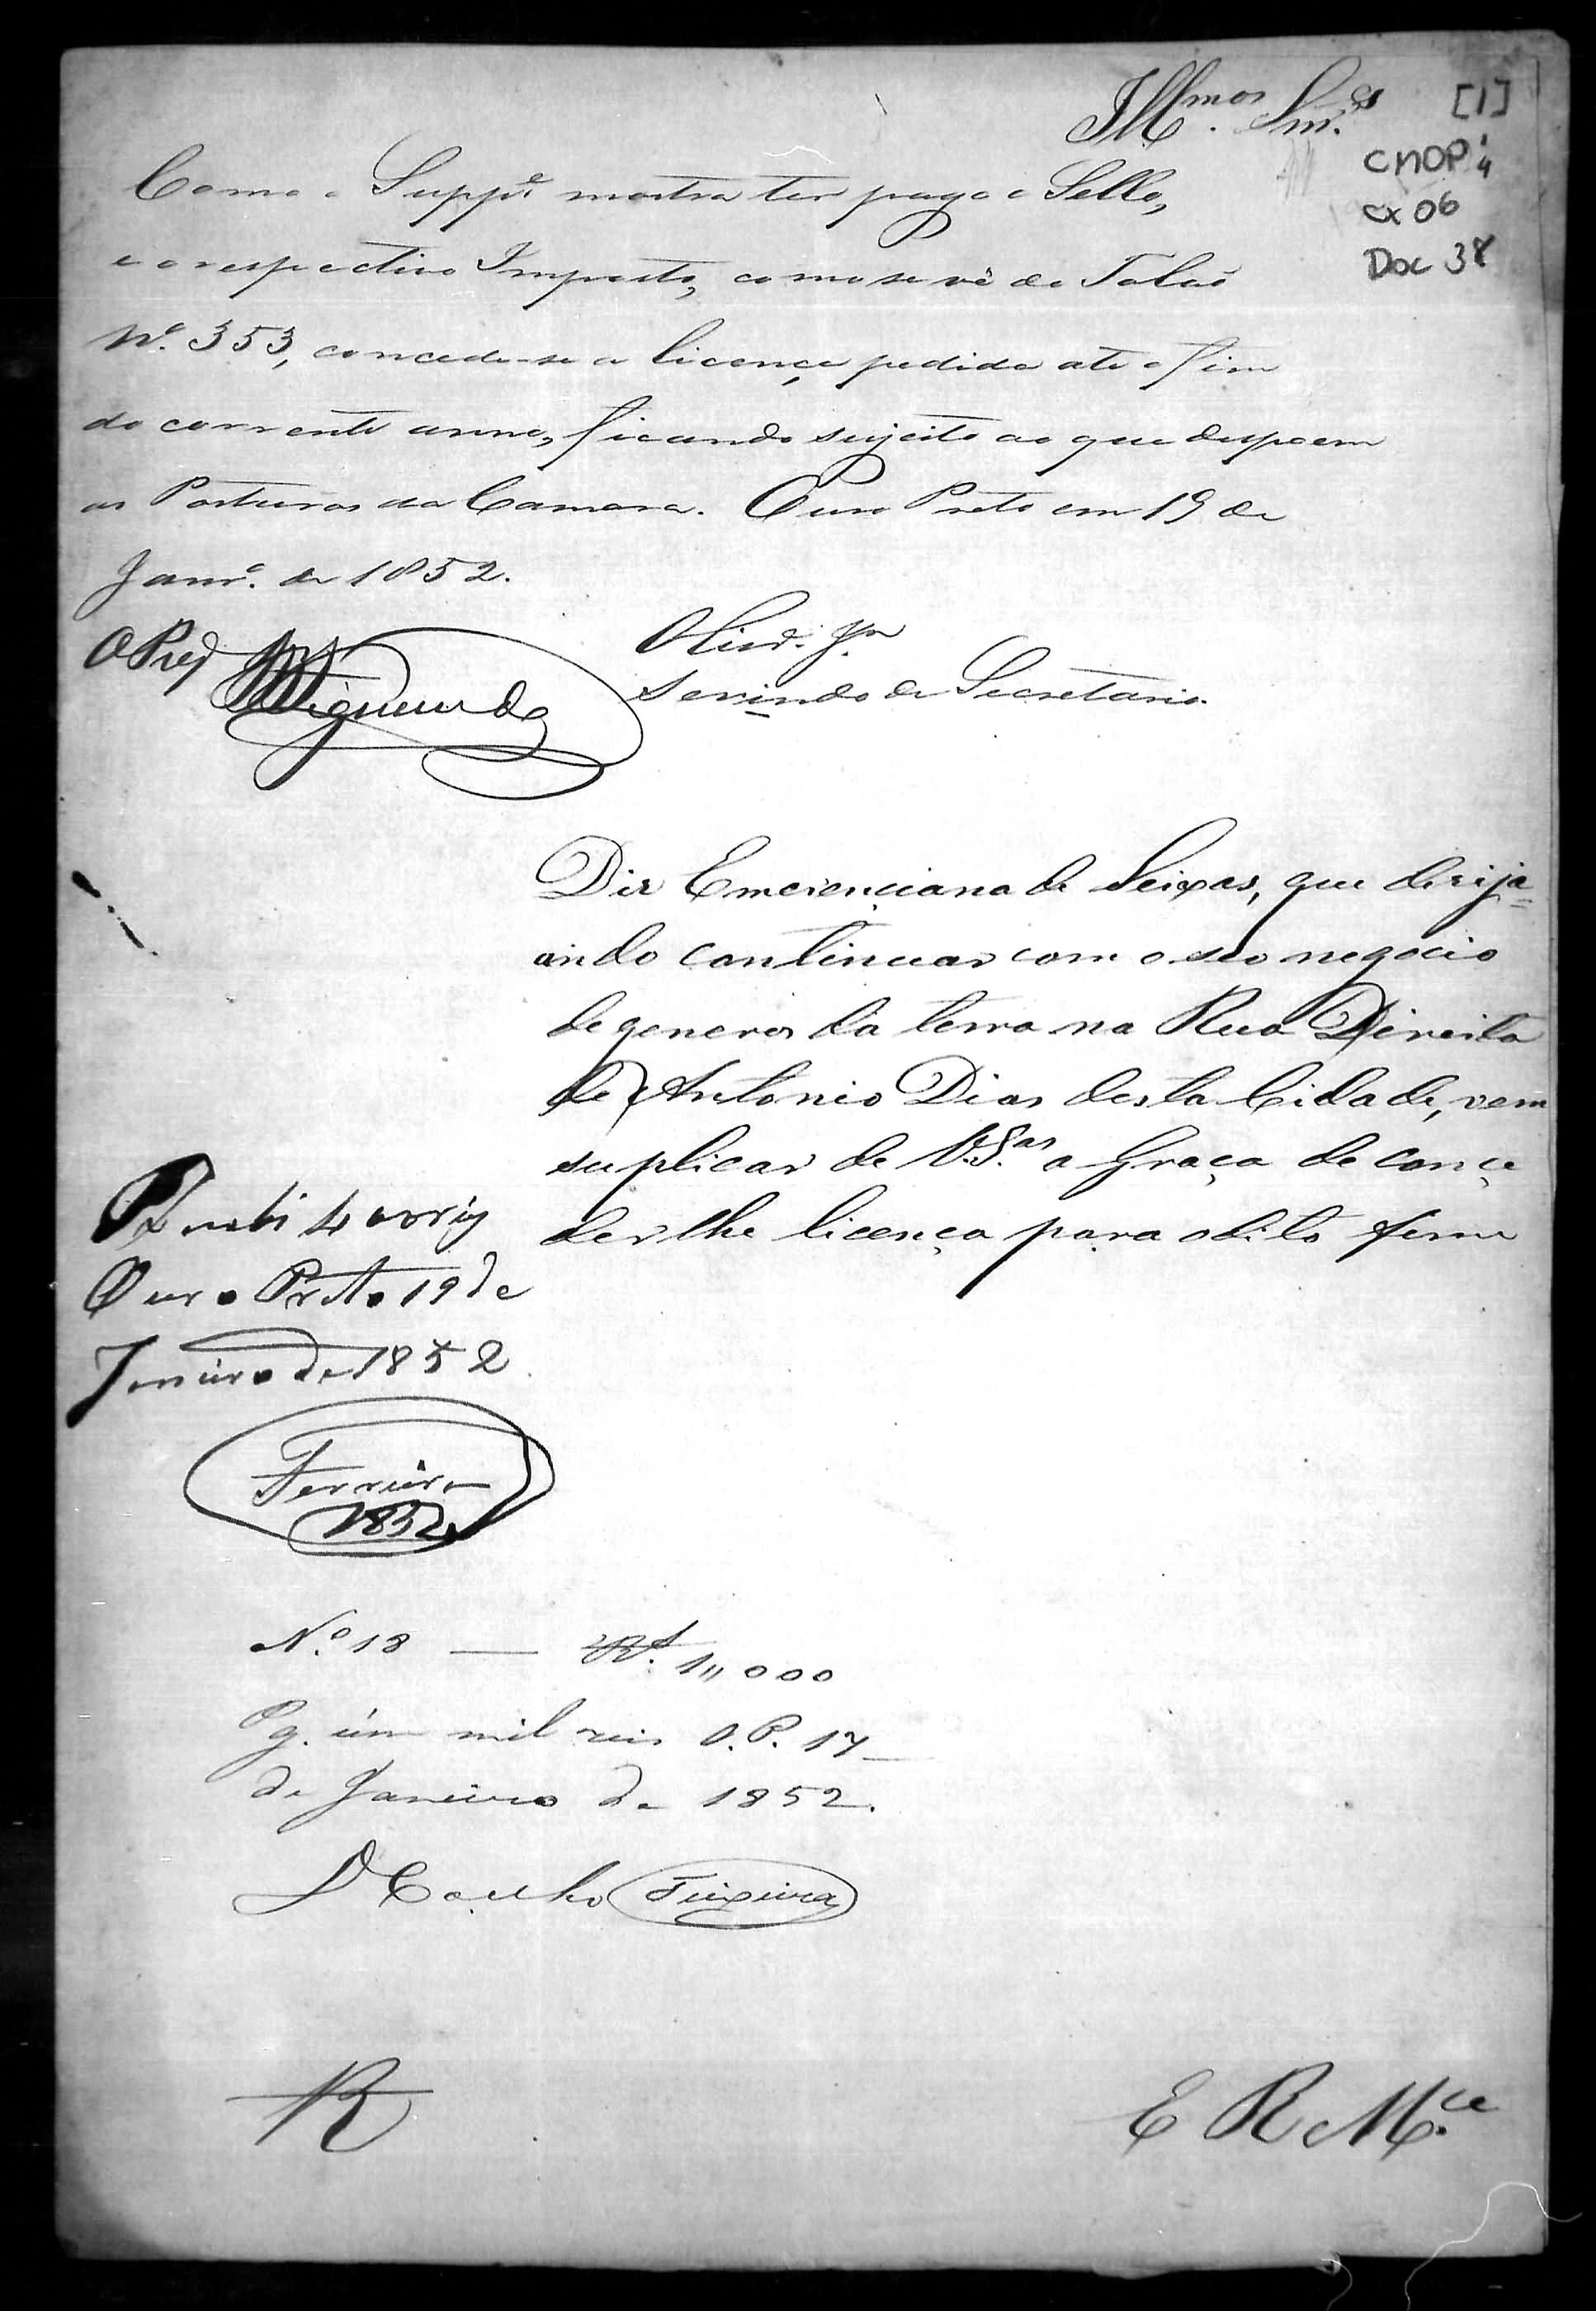 Ill.mos Snr.es
[1]
CMOP
cx 06
Doc 38
Como o Supp.e mostra ter pago o Sello,
e o respectivo Imposto, como se vê do Talão
N.º 353, concede-se a licença pedida até o fim
do corrente anno, ficando sujeito ao que despoem
as Posturas da Camara. Ouro Preto em 19 de
Janr.º de 1852.
O Prez
Servindo de Secretario.
Diz Emerenciana de Seixas, que desija=
ando continuar com o seo negocio
de generos da terra na Rua Direita
de Antonio Dias desta Cidade, vem
suplicar de V.S.as a Graça de conce
der lhe licença para o dito fim
Ouro Preto 19 de
Janeiro de 1852
Ferreira
1852
N.º 18 — Rs. 1,,000
Pg. úm mil reis O.P. 17
de Janeiro de 1852.
Coelho Teixeira
R
E R M.ce